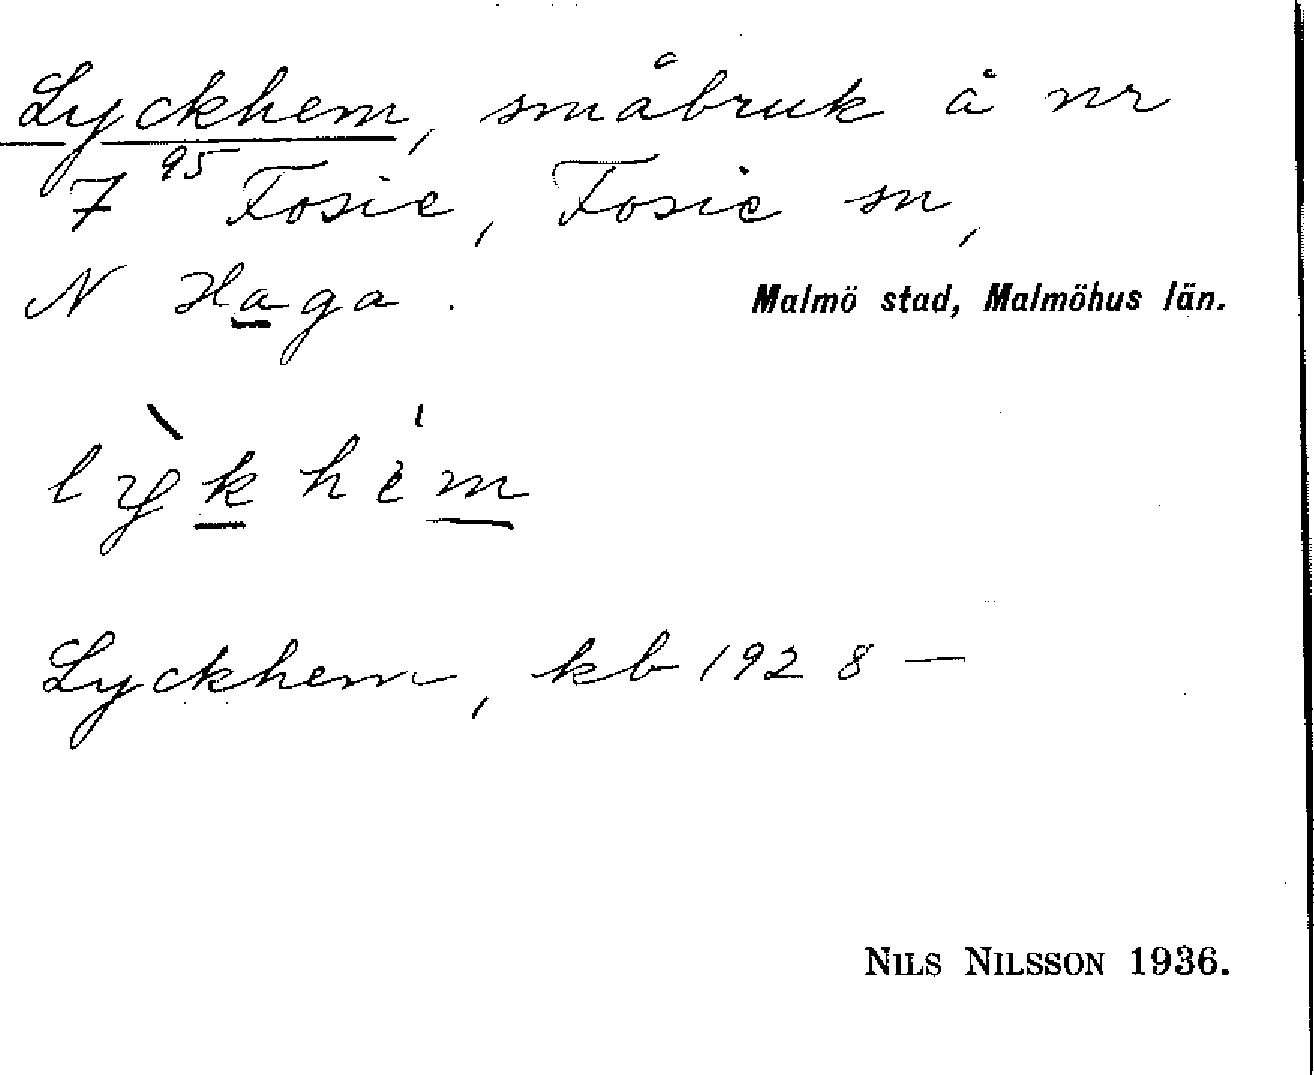 Lyckhem, småbruk å nr
7⁹⁵ Fosie, Fosie sn,
N Haga.
Malmö stad, Malmöhus län.
lỳkhém
Lyckhem, kb 1928—
NILS NILSSON 1936.